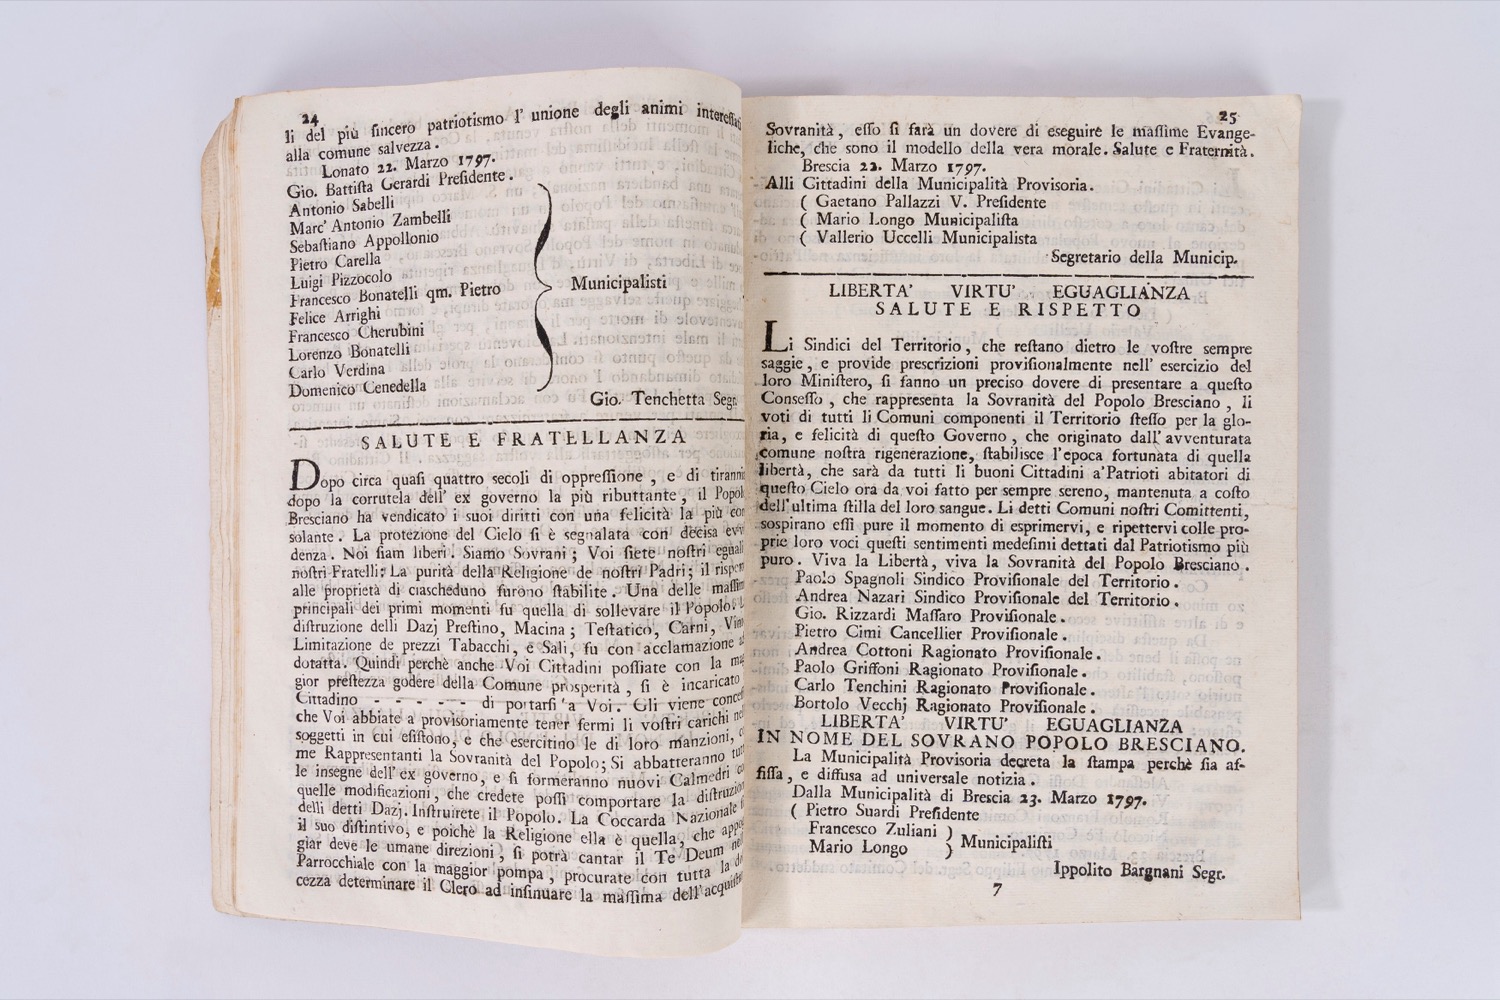 24
li del più ſincero patriotismo l' unione degli animi intereſſati
alla comune salvezza.
Lonato 22. Marzo 1797.
Gio. Battiſta Gerardi Preſidente.
Antonio Sabelli
Marc' Antonio Zambelli
Sebaſtiano Appollonio
Pietro Carella
Luigi Pizzocolo
Francesco Bonatelli qm. Pietro
Felice Arrighi
Francesco Cherubini
Lorenzo Bonatelli
Carlo Verdina
Domenico Cenedella
Municipaliſti
Gio. Tenchetta Segr.
SALUTE E FRATELLANZA
Dopo circa quaſi quattro secoli di oppreſſione, e di tirannia
dopo la corrutela dell' ex governo la più ributtante, il Popol
Bresciano ha vendicato i suoi diritti con una felicità la più con
solante. La protezione del Cielo ſi è segnalata con decisa evi
denza. Noi ſiam liberi. Siamo Sovrani; Voi ſiete noſtri eguali
noſtri Fratelli: La purità della Religione de noſtri Padri; il rispet
alle proprietà di ciascheduno furono ſtabilite. Una delle maſſim
principali dei primi momenti fu quella di sollevare il Popolo.
diſtruzione delli Dazj Preſtino, Macina; Teſtatico, Carni, Vino
Limitazione de prezzi Tabacchi, e Sali, fu con acclamazione a
dotatta. Quindi perchè anche Voi Cittadini poſſiate con la mag
gior preſtezza godere della Comune prosperità, ſi è incaricato
Cittadino - - - - - - di portarſi a Voi. Gli viene conceſ
che Voi abbiate a provisoriamente tener fermi li voſtri carichi nei
soggetti in cui eſiſtono, e che esercitino le di loro manzioni, co
me Rappresentanti la Sovranità del Popolo; Si abbatteranno tutt
le insegne dell' ex governo, e ſi formeranno nuovi Calmedri co
quelle modificazioni, che credete poſſi comportare la diſtruzion
delli detti Dazj. Inſtruirete il Popolo. La Coccarda Nazionale ſi
il suo diſtintivo, e poichè la Religione ella è quella, che appog
giar deve le umane direzioni, ſi potrà cantar il Te Deum nel
Parrocchiale con la maggior pompa, procurate con tutta la do
cezza determinare il Clero ad inſinuare la maſſima dell' acquiſtat
25
Sovranità, eſſo ſi farà un dovere di eseguire le maſſime Evange-
liche, che sono il modello della vera morale. Salute e Fraternità.
Brescia 22. Marzo 1797.
Alli Cittadini della Municipalità Provisoria.
( Gaetano Pallazzi V. Preſidente
( Mario Longo Municipaliſta
( Vallerio Uccelli Municipaliſta
Segretario della Municip.
LIBERTA' VIRTU' EGUAGLIANZA
SALUTE E RISPETTO
Li Sindici del Territorio, che reſtano dietro le voſtre sempre
saggie, e provide prescrizioni proviſionalmente nell' esercizio del
loro Miniſtero, ſi fanno un preciso dovere di presentare a queſto
Conseſſo, che rappresenta la Sovranità del Popolo Bresciano, li
voti di tutti li Comuni componenti il Territorio ſteſſo per la glo-
ria, e felicità di queſto Governo, che originato dall' avventurata
comune noſtra rigenerazione, ſtabilisce l'epoca fortunata di quella
libertà, che sarà da tutti li buoni Cittadini a'Patrioti abitatori di
queſto Cielo ora da voi fatto per sempre sereno, mantenuta a coſto
dell'ultima ſtilla del loro sangue. Li detti Comuni noſtri Comittenti,
sospirano eſſi pure il momento di esprimervi, e ripettervi colle pro-
prie loro voci queſti sentimenti medeſimi dettati dal Patriotismo più
puro. Viva la Libertà, viva la Sovranità del Popolo Bresciano.
Paolo Spagnoli Sindico Proviſionale del Territorio.
Andrea Nazari Sindico Proviſionale del Territorio.
Gio. Rizzardi Maſſaro Proviſionale.
Pietro Cimi Cancellier Proviſionale.
Andrea Cottoni Ragionato Proviſionale.
Paolo Griffoni Ragionato Proviſionale.
Carlo Tenchini Ragionato Proviſionale.
Bortolo Vecchj Ragionato Proviſionale.
LIBERTA' VIRTU' EGUAGLIANZA
IN NOME DEL SOVRANO POPOLO BRESCIANO.
La Municipalità Provisoria decreta la ſtampa perchè ſia af-
fiſſa, e diffusa ad universale notizia.
Dalla Municipalità di Brescia 23. Marzo 1797.
( Pietro Suardi Preſidente
Francesco Zuliani )
Mario Longo ) Municipaliſti
Ippolito Bargnani Segr.
7